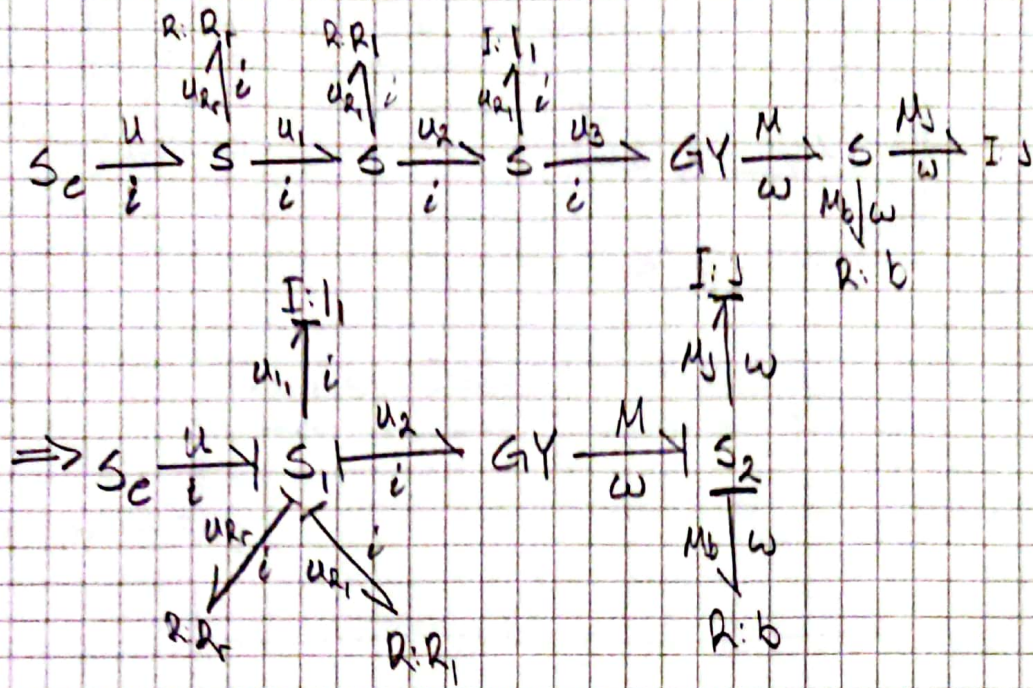 R:Rr R:R1 I:l1
uRr i uR1 i ul1 i
Se u i S u1 i S u2 i S u3 i GY M ω S MJ ω I J
Mb ω
R: b
I:l1 I:J
ul1 i MJ ω
⇒ Se u i S1 u2 i GY M ω S2
uRr i uR1 i Mb ω
R:Rr R:R1 R:b